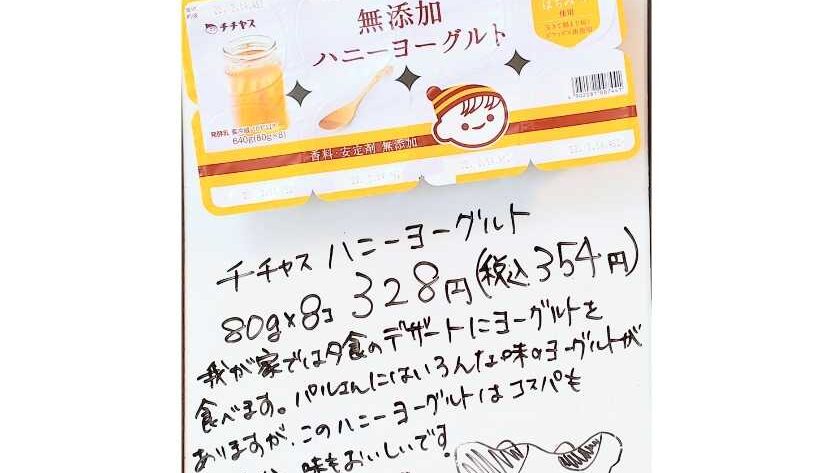 チチヤス
無添加
ハニーヨーグルト
はちみつ
使用
発酵乳 要冷蔵
640g(80g×8)
香料・安定剤 無添加
チチヤス ハニーヨーグルト
80g×8コ 328円(税込354円)
我が家では夕食のデザートにヨーグルトを
食べます。パルさんにはいろんな味のヨーグルトが
ありますが、このハニーヨーグルトはコスパも
味もおいしいです